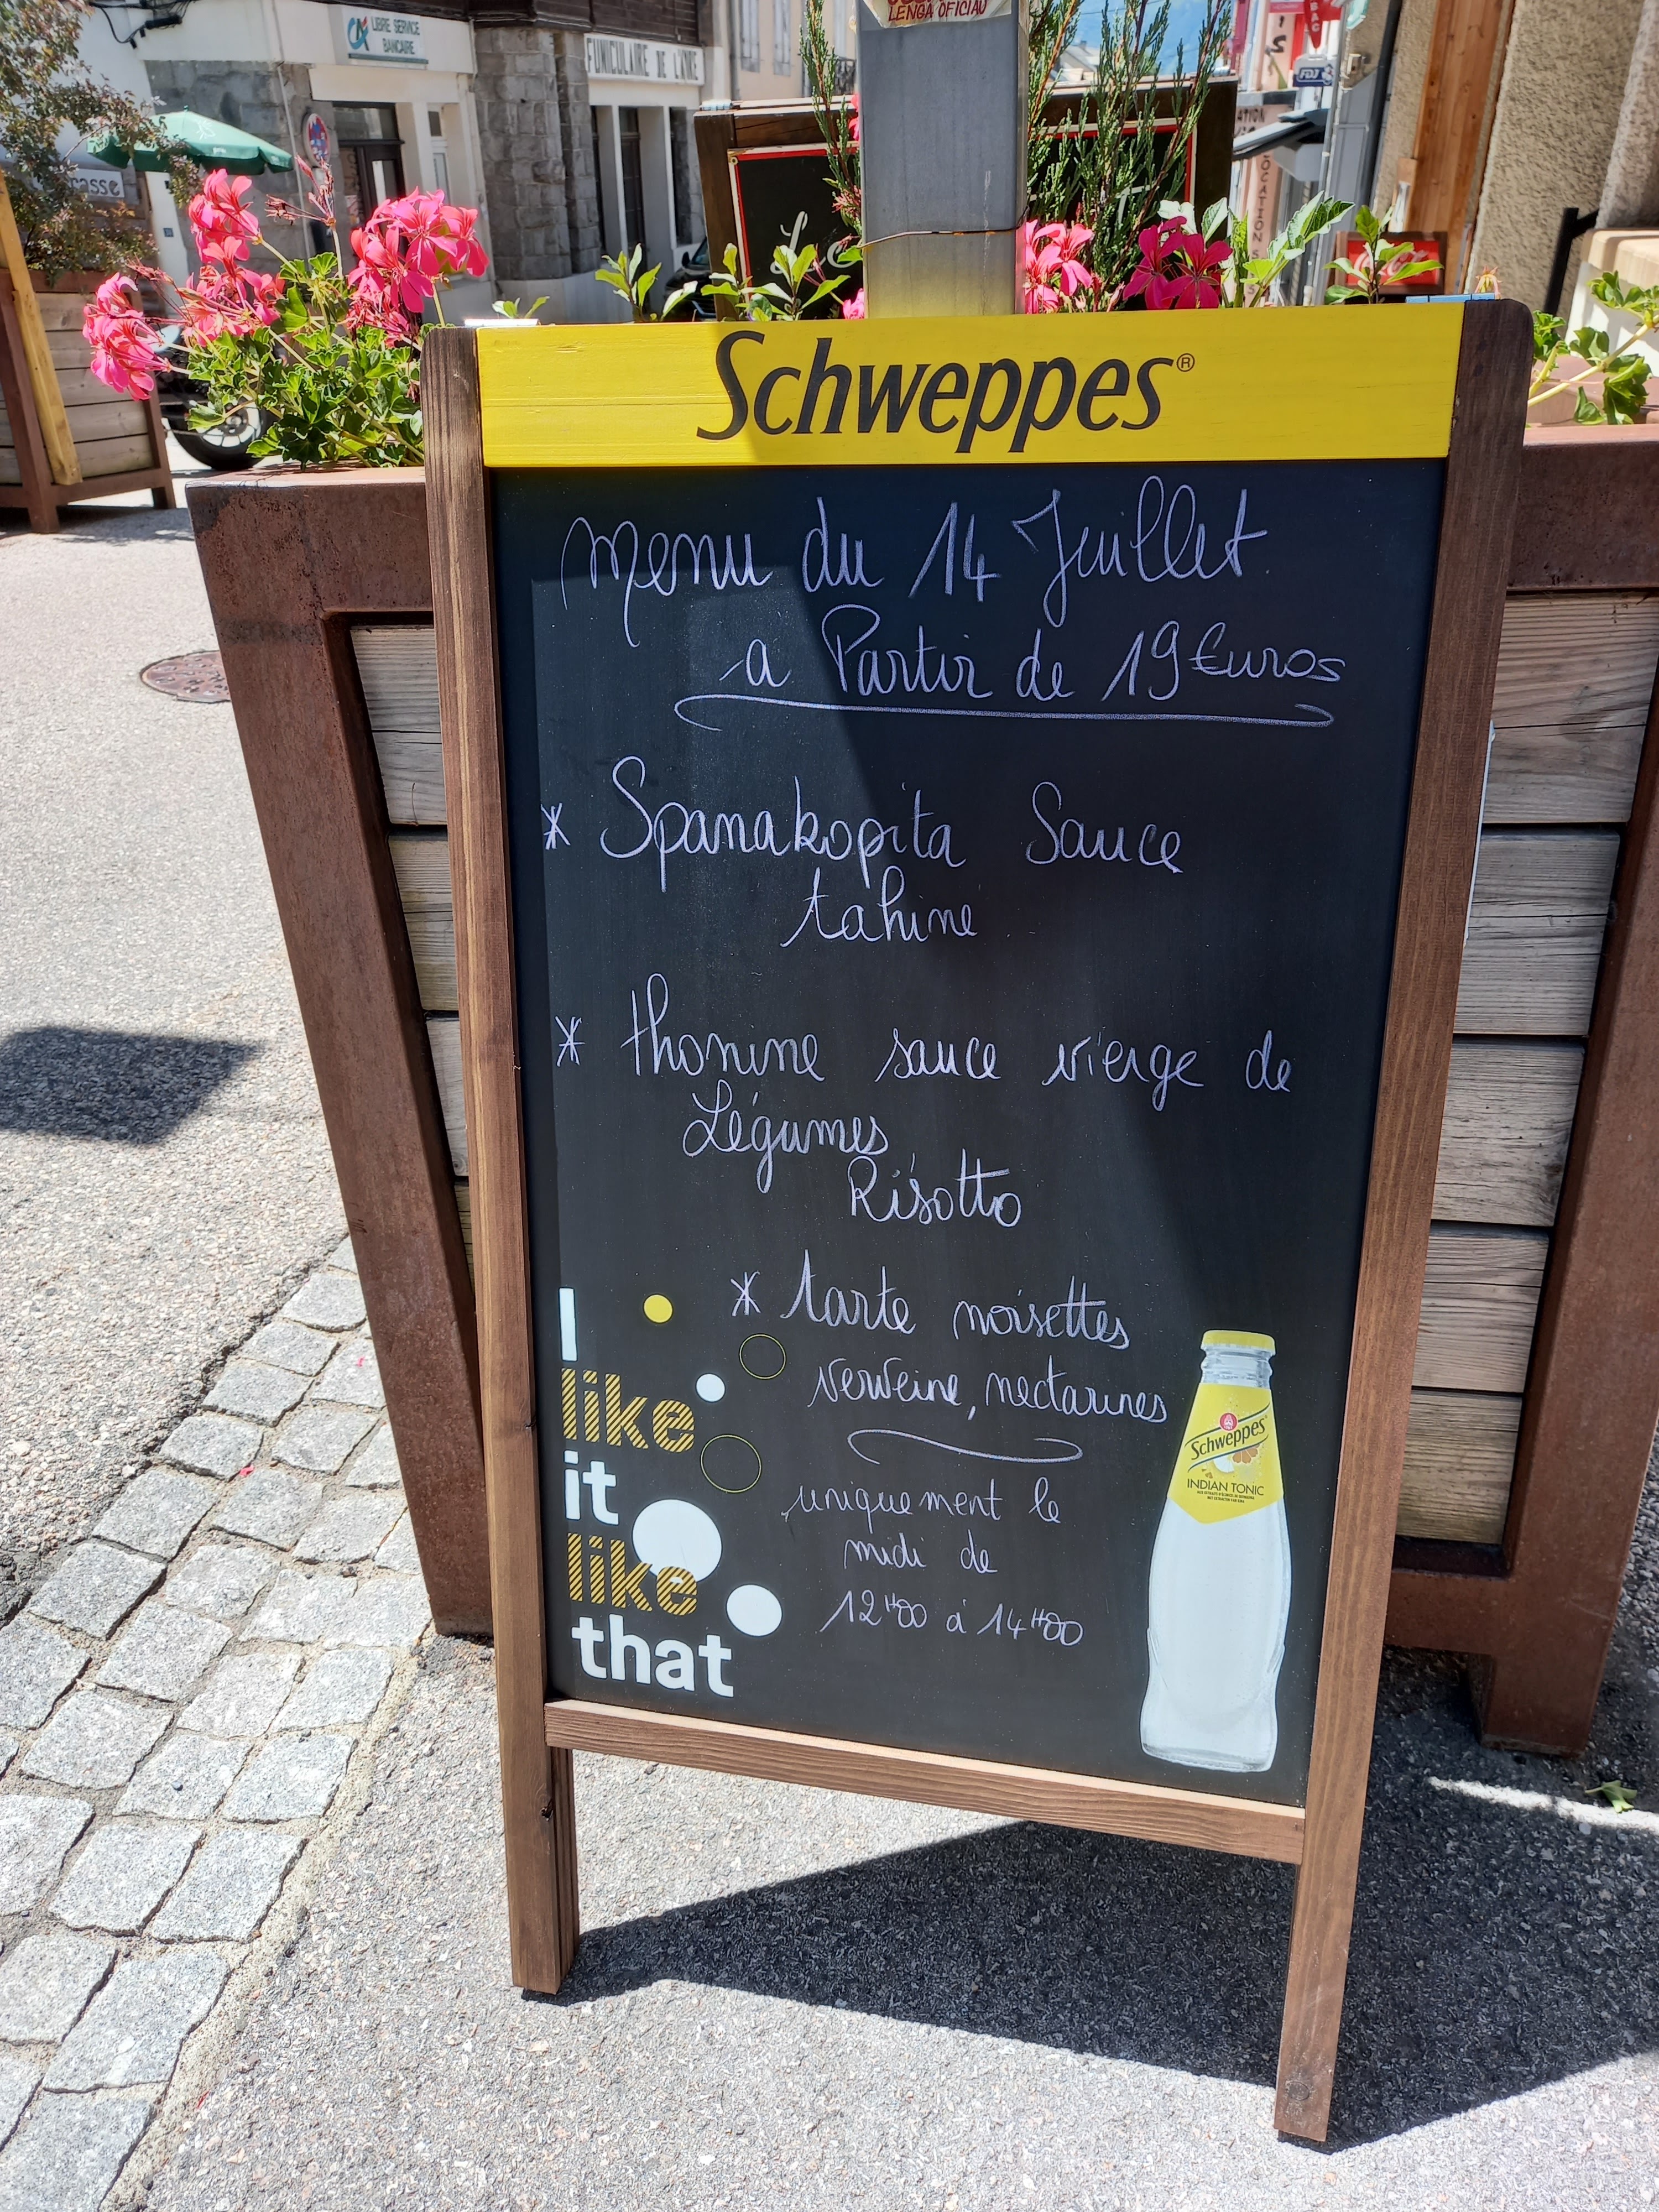 LENGA OFICIAU
LIBRE SERVICE
BANCAIRE
FUNICULAIRE DE L'AYRE
FDJ
LOCATIONS
Coca-Cola
Schweppes®
Menu du 14 Juillet
a Partir de 19 Euros
* Spanakopita Sauce
tahine
* thonine sauce vierge de
Légumes
Risotto
* tarte noisettes
verveine, nectarines
uniquement le
midi de
12H00 à 14H00
I
like
it
like
that
Schweppes
INDIAN TONIC